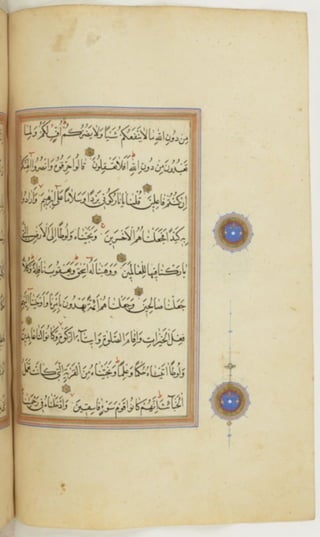 مِنْ دُونِ اللّٰهِ مَا لَا يَنْفَعُكُمْ شَيْئًا وَلَا يَضُرُّكُمْ اُفٍّ لَكُمْ وَلِمَا
تَعْبُدُونَ مِنْ دُونِ اللّٰهِ اَفَلَا تَعْقِلُونَ قَالُوا حَرِّقُوهُ وَانْصُرُوا اٰلِهَتَكُمْ
اِنْ كُنْتُمْ فَاعِلِينَ قُلْنَا يَا نَارُ كُونِي بَرْدًا وَسَلَامًا عَلٰى اِبْرٰهِيمَ وَاَرَادُوا
بِهِ كَيْدًا فَجَعَلْنَاهُمُ الْاَخْسَرِينَ وَنَجَّيْنَاهُ وَلُوطًا اِلَى الْاَرْضِ الَّتِي
بَارَكْنَا فِيهَا لِلْعَالَمِينَ وَوَهَبْنَا لَهُ اِسْحٰقَ وَيَعْقُوبَ نَافِلَةً وَكُلًّا
جَعَلْنَا صَالِحِينَ وَجَعَلْنَاهُمْ اَئِمَّةً يَهْدُونَ بِاَمْرِنَا وَاَوْحَيْنَا اِلَيْهِمْ
فِعْلَ الْخَيْرَاتِ وَاِقَامَ الصَّلٰوةِ وَاِيتَاءَ الزَّكٰوةِ وَكَانُوا لَنَا عَابِدِينَ
وَلُوطًا اٰتَيْنَاهُ حُكْمًا وَعِلْمًا وَنَجَّيْنَاهُ مِنَ الْقَرْيَةِ الَّتِي كَانَتْ تَعْمَلُ
الْخَبَائِثَ اِنَّهُمْ كَانُوا قَوْمَ سَوْءٍ فَاسِقِينَ وَاَدْخَلْنَاهُ فِي رَحْمَتِنَا